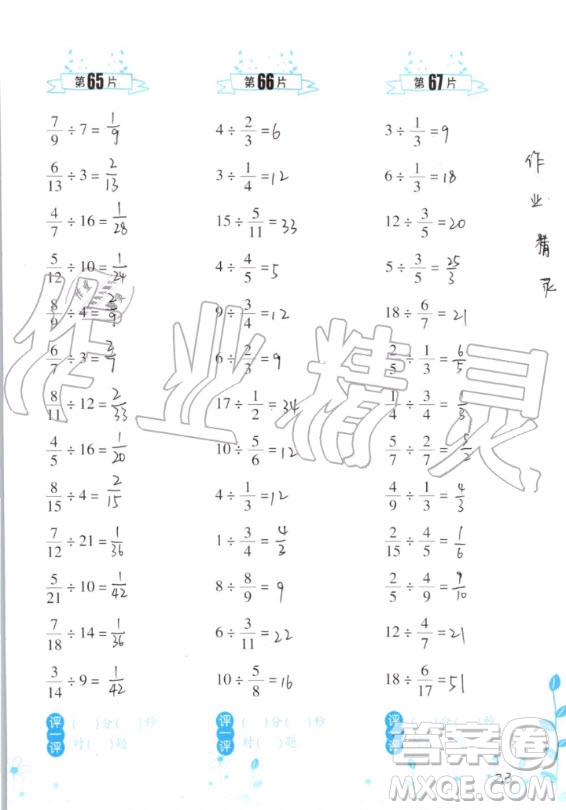 第65片
7/9 ÷ 7 = 1/9
6/13 ÷ 3 = 2/13
4/7 ÷ 16 = 1/28
5/12 ÷ 10 = 1/24
8/9 ÷ 4 = 2/9
6/7 ÷ 3 = 2/7
8/11 ÷ 12 = 2/33
4/5 ÷ 16 = 1/20
8/15 ÷ 4 = 2/15
7/12 ÷ 21 = 1/36
5/21 ÷ 10 = 1/42
7/18 ÷ 14 = 1/36
3/14 ÷ 9 = 1/42
评一评
( )分( )秒
对( )题
第66片
4 ÷ 2/3 = 6
3 ÷ 1/4 = 12
15 ÷ 5/11 = 33
4 ÷ 4/5 = 5
9 ÷ 3/4 = 12
6 ÷ 2/3 = 9
17 ÷ 1/2 = 34
10 ÷ 5/6 = 12
4 ÷ 1/3 = 12
1 ÷ 3/4 = 4/3
8 ÷ 8/9 = 9
6 ÷ 3/11 = 22
10 ÷ 5/8 = 16
评一评
( )分( )秒
对( )题
第67片
3 ÷ 1/3 = 9
6 ÷ 1/3 = 18
12 ÷ 3/5 = 20
5 ÷ 3/5 = 25/3
18 ÷ 6/7 = 21
2/5 ÷ 1/3 = 6/5
1/4 ÷ 3/4 = 1/3
5/7 ÷ 2/7 = 5/2
4/9 ÷ 1/3 = 4/3
2/15 ÷ 4/5 = 1/6
2/5 ÷ 4/9 = 9/10
12 ÷ 4/7 = 21
18 ÷ 6/17 = 51
评一评
作业精灵
作业精灵
答案圈
MXQE.COM
23